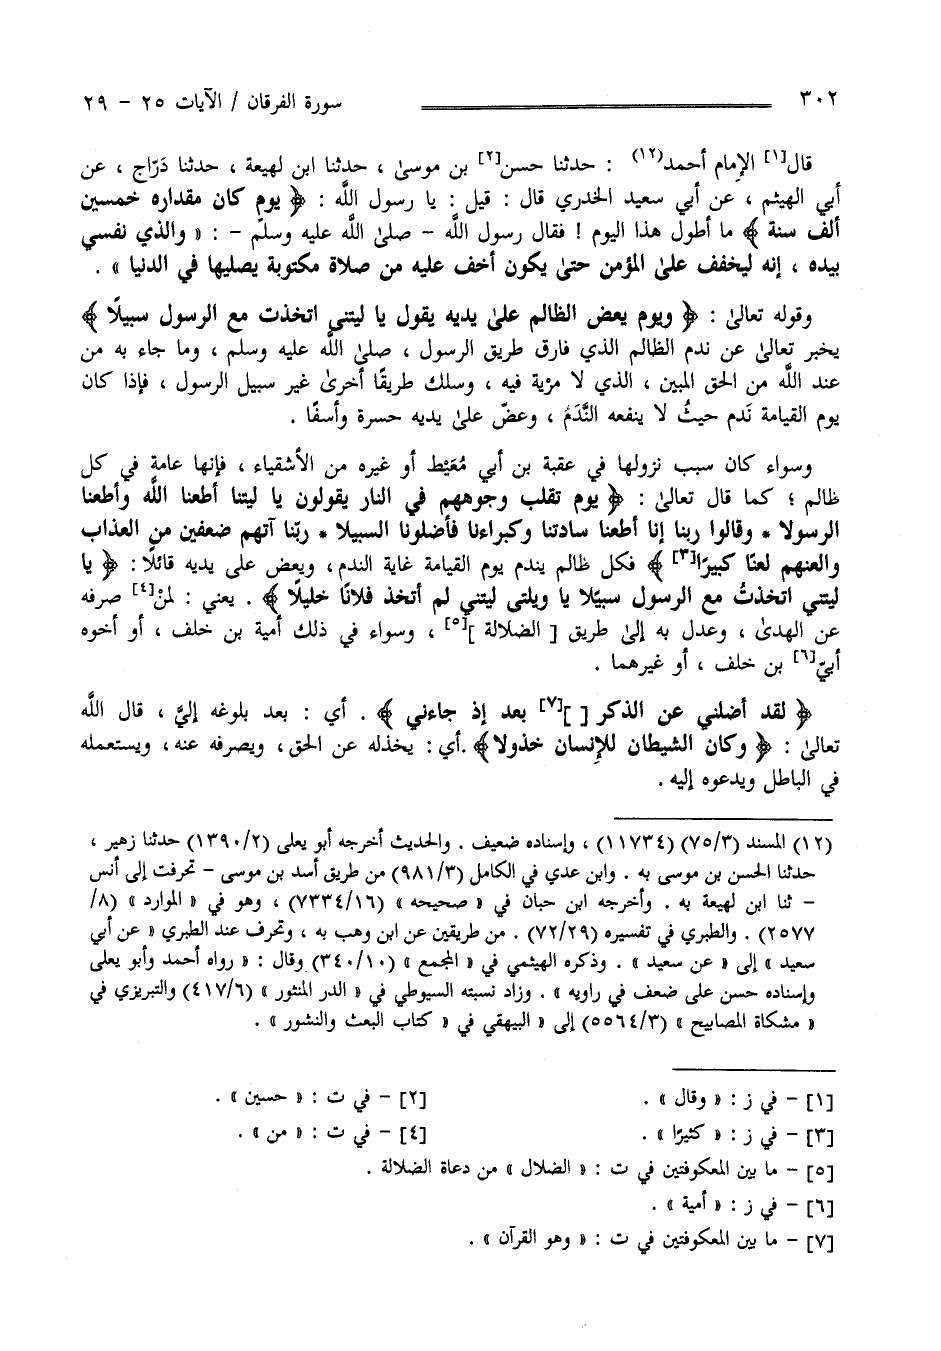 ٣٠٢ سورة الفرقان / الآيات ٢٥ - ٢٩
قال[١] الإمام أحمد(١٢) : حدثنا حسن[٢] بن موسىٰ ، حدثنا ابن لهيعة ، حدثنا دَرّاج ، عن
أبي الهيثم ، عن أبي سعيد الخدري قال : قيل : يا رسول اللَّه : ﴿ يوم كان مقداره خمسين
ألف سنة ﴾ ما أطول هذا اليوم ! فقال رسول اللَّه - صلىٰ اللَّه عليه وسلّم - : « والذي نفسي
بيده ، إنه ليخفف علىٰ المؤمن حتىٰ يكون أخف عليه من صلاة مكتوبة يصليها في الدنيا » .
وقوله تعالىٰ : ﴿ ويوم يعض الظالم علىٰ يديه يقول يا ليتني اتخذت مع الرسول سبيلًا ﴾
يخبر تعالىٰ عن ندم الظالم الذي فارق طريق الرسول ، صلىٰ اللَّه عليه وسلم ، وما جاء به من
عند اللَّه من الحق المبين ، الذي لا مرية فيه ، وسلك طريقًا أخرىٰ غير سبيل الرسول ، فإذا كان
يوم القيامة نَدم حيثُ لا ينفعه النَّدَمُ ، وعضّ علىٰ يديه حسرة وأسفًا .
وسواء كان سبب نزولها في عقبة بن أبي مُعَيْط أو غيره من الأشقياء ، فإنها عامة في كل
ظالم ؛ كما قال تعالىٰ : ﴿ يوم تقلب وجوههم في النار يقولون يا ليتنا أطعنا اللَّه وأطعنا
الرسولا * وقالوا ربنا إنا أطعنا سادتنا وكبراءنا فأضلونا السبيلا * ربّنا آتهم ضعفين من العذاب
والعنهم لعنًا كبيرًا[٣] ﴾ فكل ظالم يندم يوم القيامة غاية الندم، ويعض على يديه قائلًا: ﴿ يا
ليتني اتخذتُ مع الرسول سبيلا يا ويلتى ليتني لم أتخذ فلانًا خليلًا ﴾ . يعني : لمنْ[٤] صرفه
عن الهدىٰ ، وعدل به إلىٰ طريق [ الضلالة ][٥] ، وسواء في ذلك أمية بن خلف ، أو أخوه
أبيّ[٦] بن خلف ، أو غيرهما .
﴿ لقد أضلني عن الذكر [ ][٧] بعد إذ جاءني ﴾ . أي : بعد بلوغه إليَّ ، قال اللَّه
تعالىٰ : ﴿ وكان الشيطان للإنسان خذولا﴾ .أي: يخذله عن الحق، ويصرفه عنه، ويستعمله
في الباطل ويدعوه إليه .
(١٢) المسند (٧٥/٣) (١١٧٣٤) ، وإسناده ضعيف . والحديث أخرجه أبو يعلى (١٣٩٠/٢) حدثنا زهير ،
حدثنا الحسن بن موسى به . وابن عدي في الكامل (٩٨١/٣) من طريق أسد بن موسى - تحرفت إلى أنس
- ثنا ابن لهيعة به . وأخرجه ابن حبان في « صحيحه » (٧٣٣٤/١٦) ، وهو في « الموارد » (٨/
٢٥٧٧) . والطبري في تفسيره (٧٢/٢٩) . من طريقين عن ابن وهب به ، وتحرف عند الطبري « عن أبي
سعيد » إلى « عن سعيد » . وذكره الهيثمي في « المجمع » (٣٤٠/١٠) وقال : « رواه أحمد وأبو يعلى
وإسناده حسن على ضعف في راويه » . وزاد نسبته السيوطي في « الدر المنثور » (٤١٧/٦) والتبريزي في
« مشكاة المصابيح » (٥٥٦٤/٣) إلى « البيهقي في « كتاب البعث والنشور » .
[١] - في ز : « وقال » . [٢] - في ت : « حسين » .
[٣] - في ز : « كثيرًا » . [٤] - في ت : « من » .
[٥] - ما بين المعكوفتين في ت : « الضلال » من دعاة الضلالة .
[٦] - في ز : « أمية » .
[٧] - ما بين المعكوفتين في ت : « وهو القرآن » .